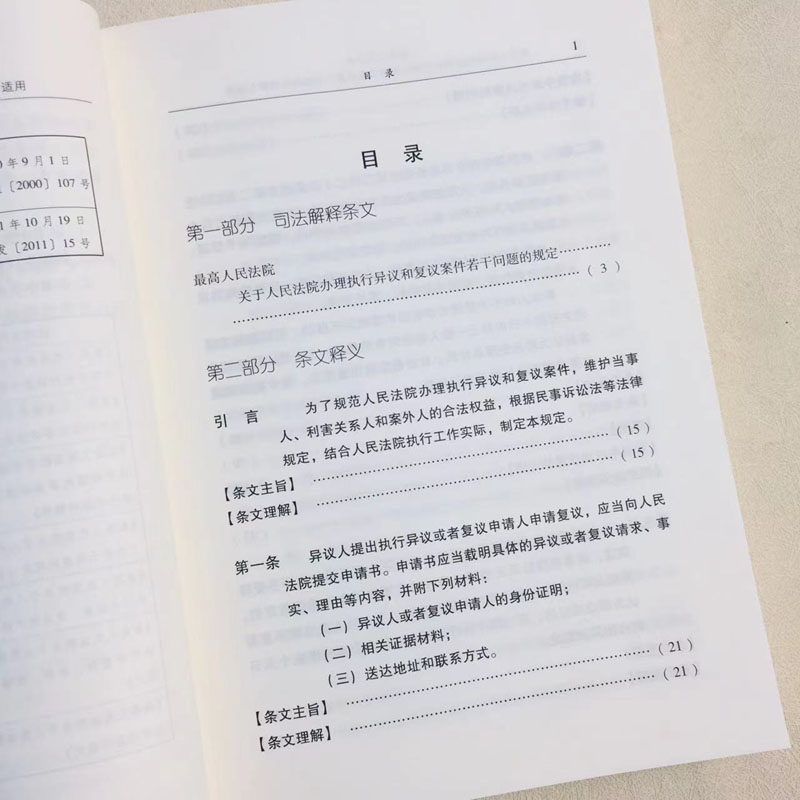 适用
0年9月1日
〔2000〕107号
1年10月19日
发〔2011〕15号
目 录
1
目 录
第一部分 司法解释条文
最高人民法院
关于人民法院办理执行异议和复议案件若干问题的规定…………
……………………………………………………………………（3）
第二部分 条文释义
引 言 为了规范人民法院办理执行异议和复议案件，维护当事
人、利害关系人和案外人的合法权益，根据民事诉讼法等法律
规定，结合人民法院执行工作实际，制定本规定。
【条文主旨】……………………………………………………（15）
【条文理解】……………………………………………………（15）
第一条 异议人提出执行异议或者复议申请人申请复议，应当向人民
法院提交申请书。申请书应当载明具体的异议或者复议请求、事
实、理由等内容，并附下列材料：
（一）异议人或者复议申请人的身份证明；
（二）相关证据材料；
（三）送达地址和联系方式。
【条文主旨】……………………………………………………（21）
【条文理解】……………………………………………………（21）